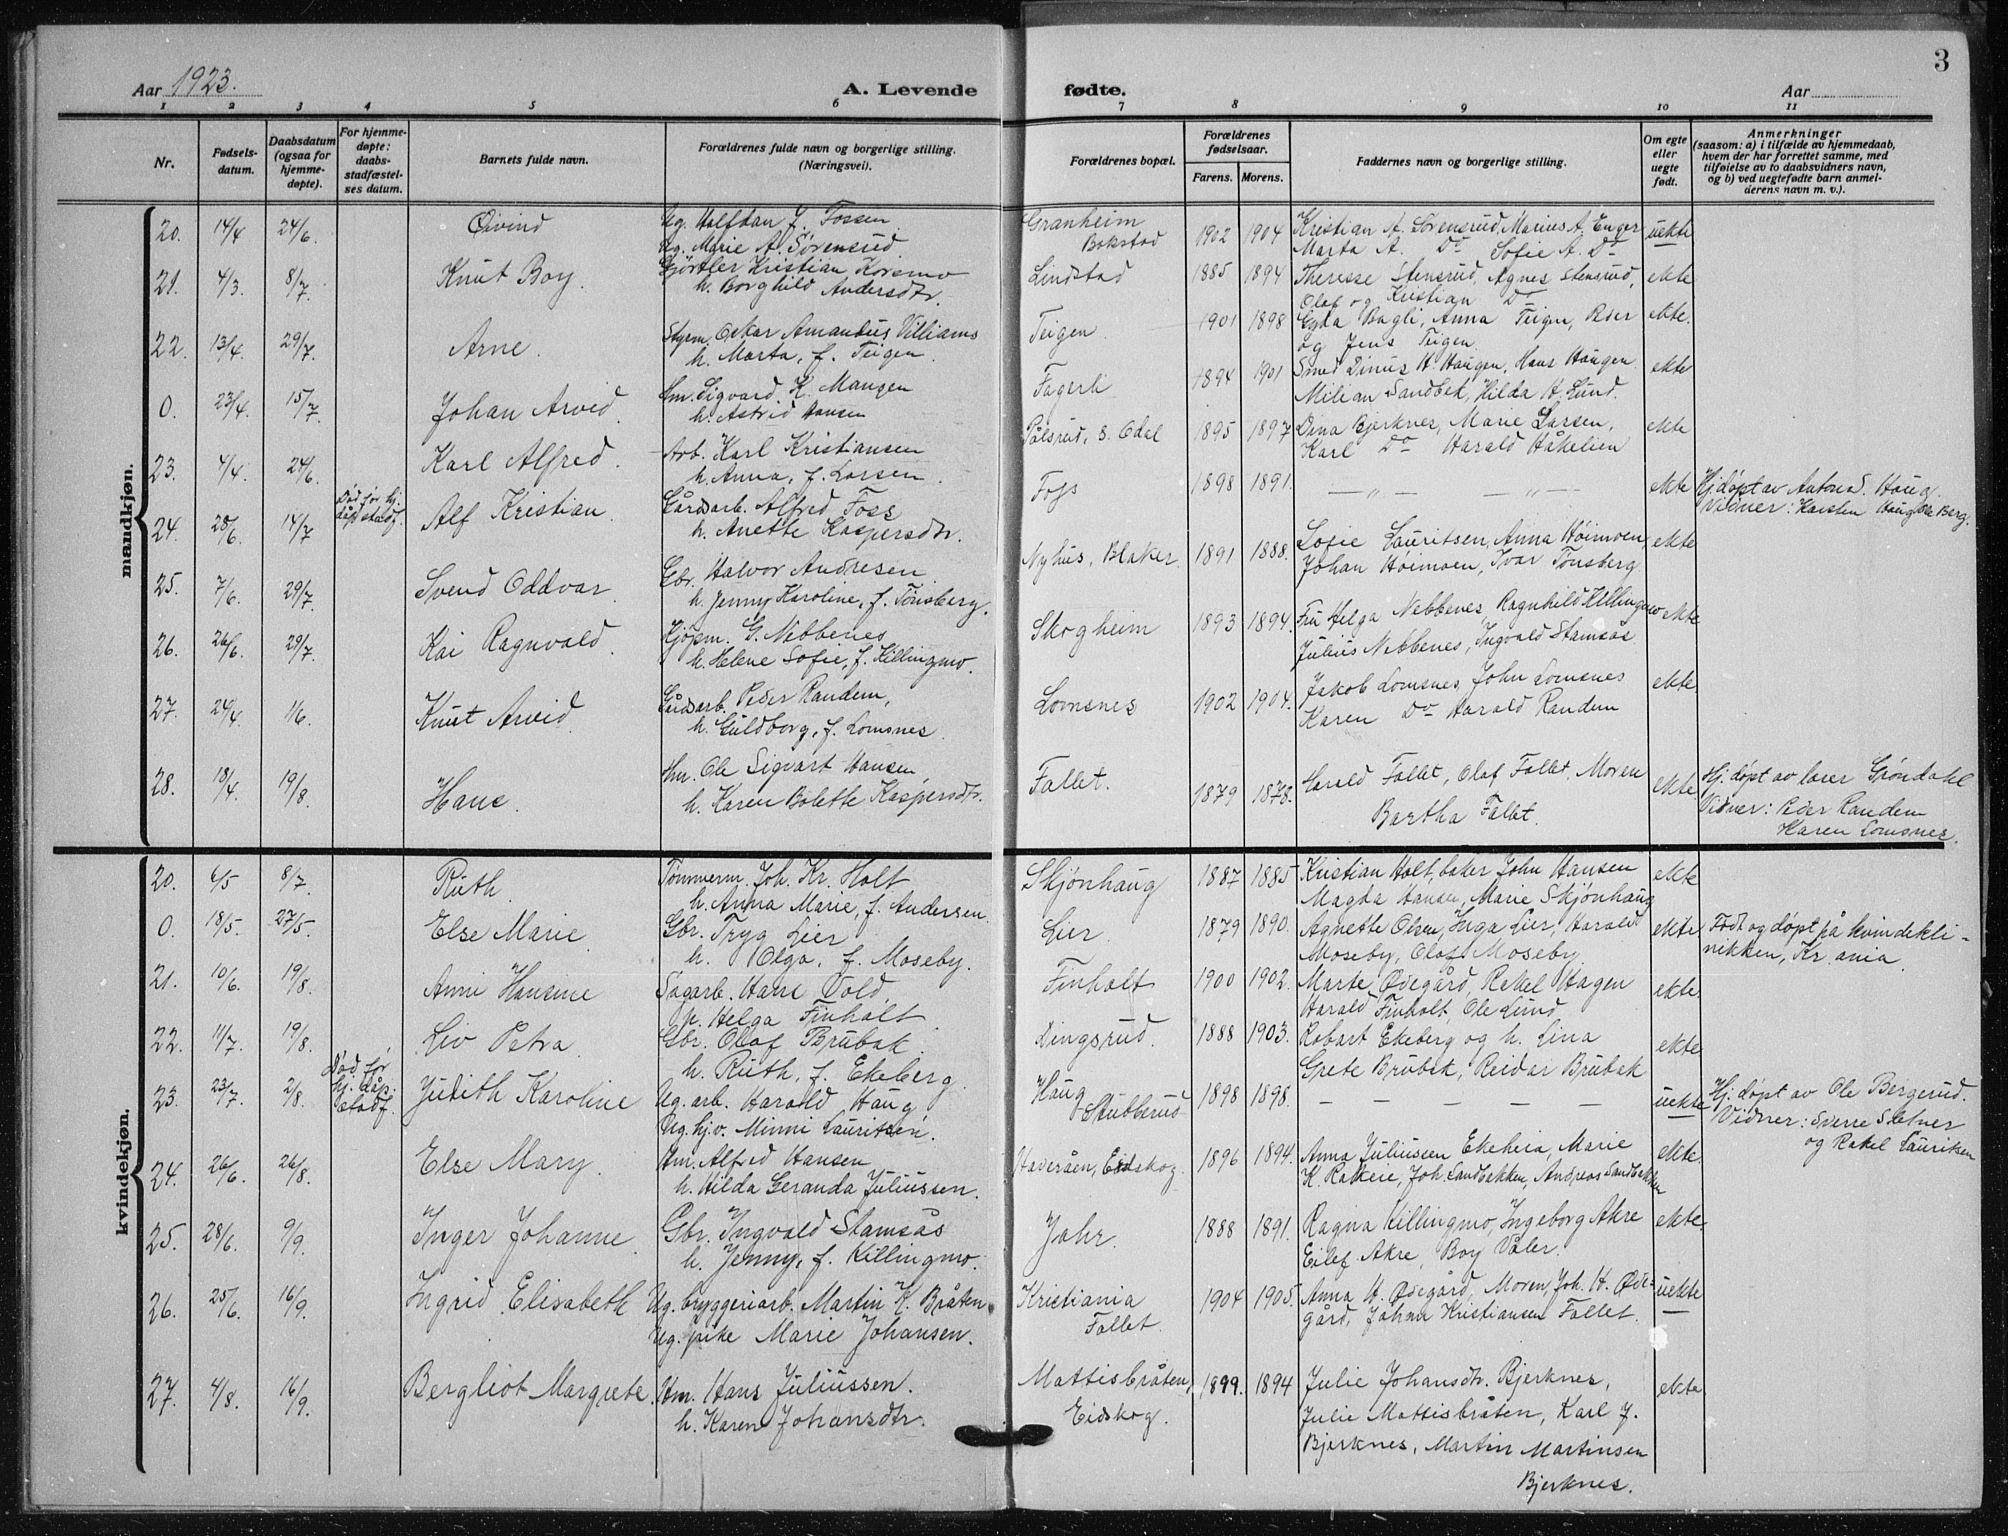 3
Aar 1923. A. Levende fødte. Aar
1 2 3 4 5 6 7 8 9 10 11
Nr. Fødsels-datum. Daabsdatum (ogsaa for hjemme-døpte). For hjemme-døpte: daabs-stadfæstel-ses datum. Barnets fulde navn. Forældrenes fulde navn og borgerlige stilling. (Næringsvei). Forældrenes bopæl. Forældrenes fødselsaar. Farens. Morens. Faddernes navn og borgerlige stilling. Om egte eller uegte født. Anmerkninger (saasom: a) i tilfælde av hjemmedaab, hvem der har forrettet samme, med tilføielse av to daabsvidners navn, og b) ved uegtefødte barn anmel-derens navn m. v.).
mandkjøn.
20. 14/4 24/6. Øivind Ug. Halfdan J. Fossen Granheim 1902 1904 Kristian A. Sørensrud, Marius A. Enger uekte
Ug. Marie A. Sørensrud Bokstad Marta A. Do Sofie A. Do
21. 4/3. 8/7. Knut Boy Gjørtler Kristian Korsmo Lindstad 1885 1894 Therese Stensrud, Agnes Stensrud, ekte
h. Borghild Andersdtr. Olaf og Kristian Do
22. 13/4. 29/7. Arne. Styrm. Oskar Amandus Villiams Teigen 1901 1898 Gyda Bagli, Anna Teigen, Peder ekte.
h. Marta, f. Teigen. og Jens Teigen.
0. 23/4. 15/7. Johan Arvid. Hm. Sigvard K. Mangen Fagerli 1894 1901 Smed Dinus H. Haugen, Hans Haugen ekte
h. Astrid Hansen Milian Sandbek, Hilda H. Lund.
23. 4/4. 24/6. Karl Alfred. Arb. Karl Kristiansen Pålsrud, s. Odal 1895 1897 Dina Bjerknes, Marie Larsen, ekte
h. Anna, f. Larsen. Karl Do Harald Håkelien
24. 28/6. 14/7. Død før hj. dåp stadf. Alf Kristian. Gårdsarb. Alfred Foss Foss 1898 1891. — „ — — „ — ekte Hj. døpt av Anton Haug.
h. Anette Kaspersdtr. Vidner: Karsten Haug Berg.
25. 7/6. 29/7. Svend Oddvar. Gbr. Halvor Andresen Nyhus, Blaker 1891 1888. Sofie Lauritsen, Anna Høimoen, ekte
h. Jenny Karoline, f. Tønsberg. Johan Høimoen, Ivar Tønsberg.
26. 26/6. 29/7. Kai Ragnvald. Kjøpm. G. Nebbenes Skogheim 1893 1894. Fru Helga Nebbenes, Ragnhild Killingmo ekte
h. Helene Sofie, f. Killingmo. Julius Nebbenes, Ingvald Stamsås
27. 24/4 1/6. Knut Arvid. Gårdsarb. Peder Randem, Lomsnes 1902 1904. Jakob Lomsnes, John Lomsnes ekte
h. Guldborg, f. Lomsnes. Karen Do Harald Randem
28. 18/4. 19/8. Hans. Hm. Ole Sigvart Hansen, Fallet. 1879 1878. Harald Fallet, Olaf Fallet, Moren ekte Hj. døpt av lærer Grøndahl
h. Karen Bolette Kaspersdtr. Bertha Fallet. Vidner: Peder Randem
Karen Lomsnes.
kvindekjøn.
20. 6/5 8/7. Ruth Tømmerm. Joh. Kr. Holt Skjønhaug 1887 1885 Kristian Holt, baker John Hansen ekte
h. Anna Marie, f. Andersen. Magda Hansen, Marie Skjønhaug
0. 18/5. 27/5. Else Marie. Gbr. Tryg Lier Lier 1879 1890. Agnette Olsen, Inga Lier, Harald ekte Født og døpt på kvindekli-
h. Olga, f. Moseby. Moseby, Olaf Moseby. nikken, Kr.ania.
21. 10/6. 19/8. Anni Hansine Sagarb. Hans Vold Finholt 1900 1902. Marte Ødegård, Rakel Hagen ekte.
h. Helga Finholt. Harald Finholt, Ole Lund
22. 11/7. 19/8. Liv Petra Gbr. Olaf Brubak. Ringsrud. 1888 1903. Robart Ekeberg og h. Lina ekte
h. Ruth, f. Ekeberg. Grete Brubak, Reidar Brubak
23. 23/7. 2/8. Død før hj. dåp. stadf. Judith Karoline Ug. arb. Harald Haug Haug 1898 1898. — — — — — uekte Hj. døpt av Ole Bergerud.
Ug. hj.v. Minni Lauritsen. Stubberud Vidner: Sverre Sletner
og Rakel Lauritsen
24. 26/6. 26/8. Else Mary. Hm. Alfred Hansen Haveråen, Eidskog. 1896 1894. Anna Juliussen Ekeheia, Marie ekte.
h. Hilda Geranda Juliussen. K. Rakeie, Joh. Sandbakken, Andreas Sandbakken
25. 28/6. 9/9. Inger Johanne. Gbr. Ingvald Stamsås Jahr. 1888 1891. Ragna Killingmo, Ingeborg Akre ekte.
h. Jenny, f. Killingmo. Eilef Akre, Boy Våler.
26. 25/6. 16/9. Ingrid Elisabeth Ug. bryggeriarb. Martin K. Bråten. Kristiania 1904 1905. Anna H. Ødegård, Moren, Joh. H. Øde- uekte
Ug. pike Marie Johansen. Fallet. gård, Johna Kristiansen Fallet.
27. 4/8. 16/9. Bergliot Margrete. Hm. Hans Juliussen. Mattisbråten, 1899. 1894 Julie Johansdtr. Bjerknes, ekte
h. Karen Johansdtr. Eidskog. Julie Mattisbråten, Karl J.
Bjerknes, Martin Martinsen
Bjerknes.